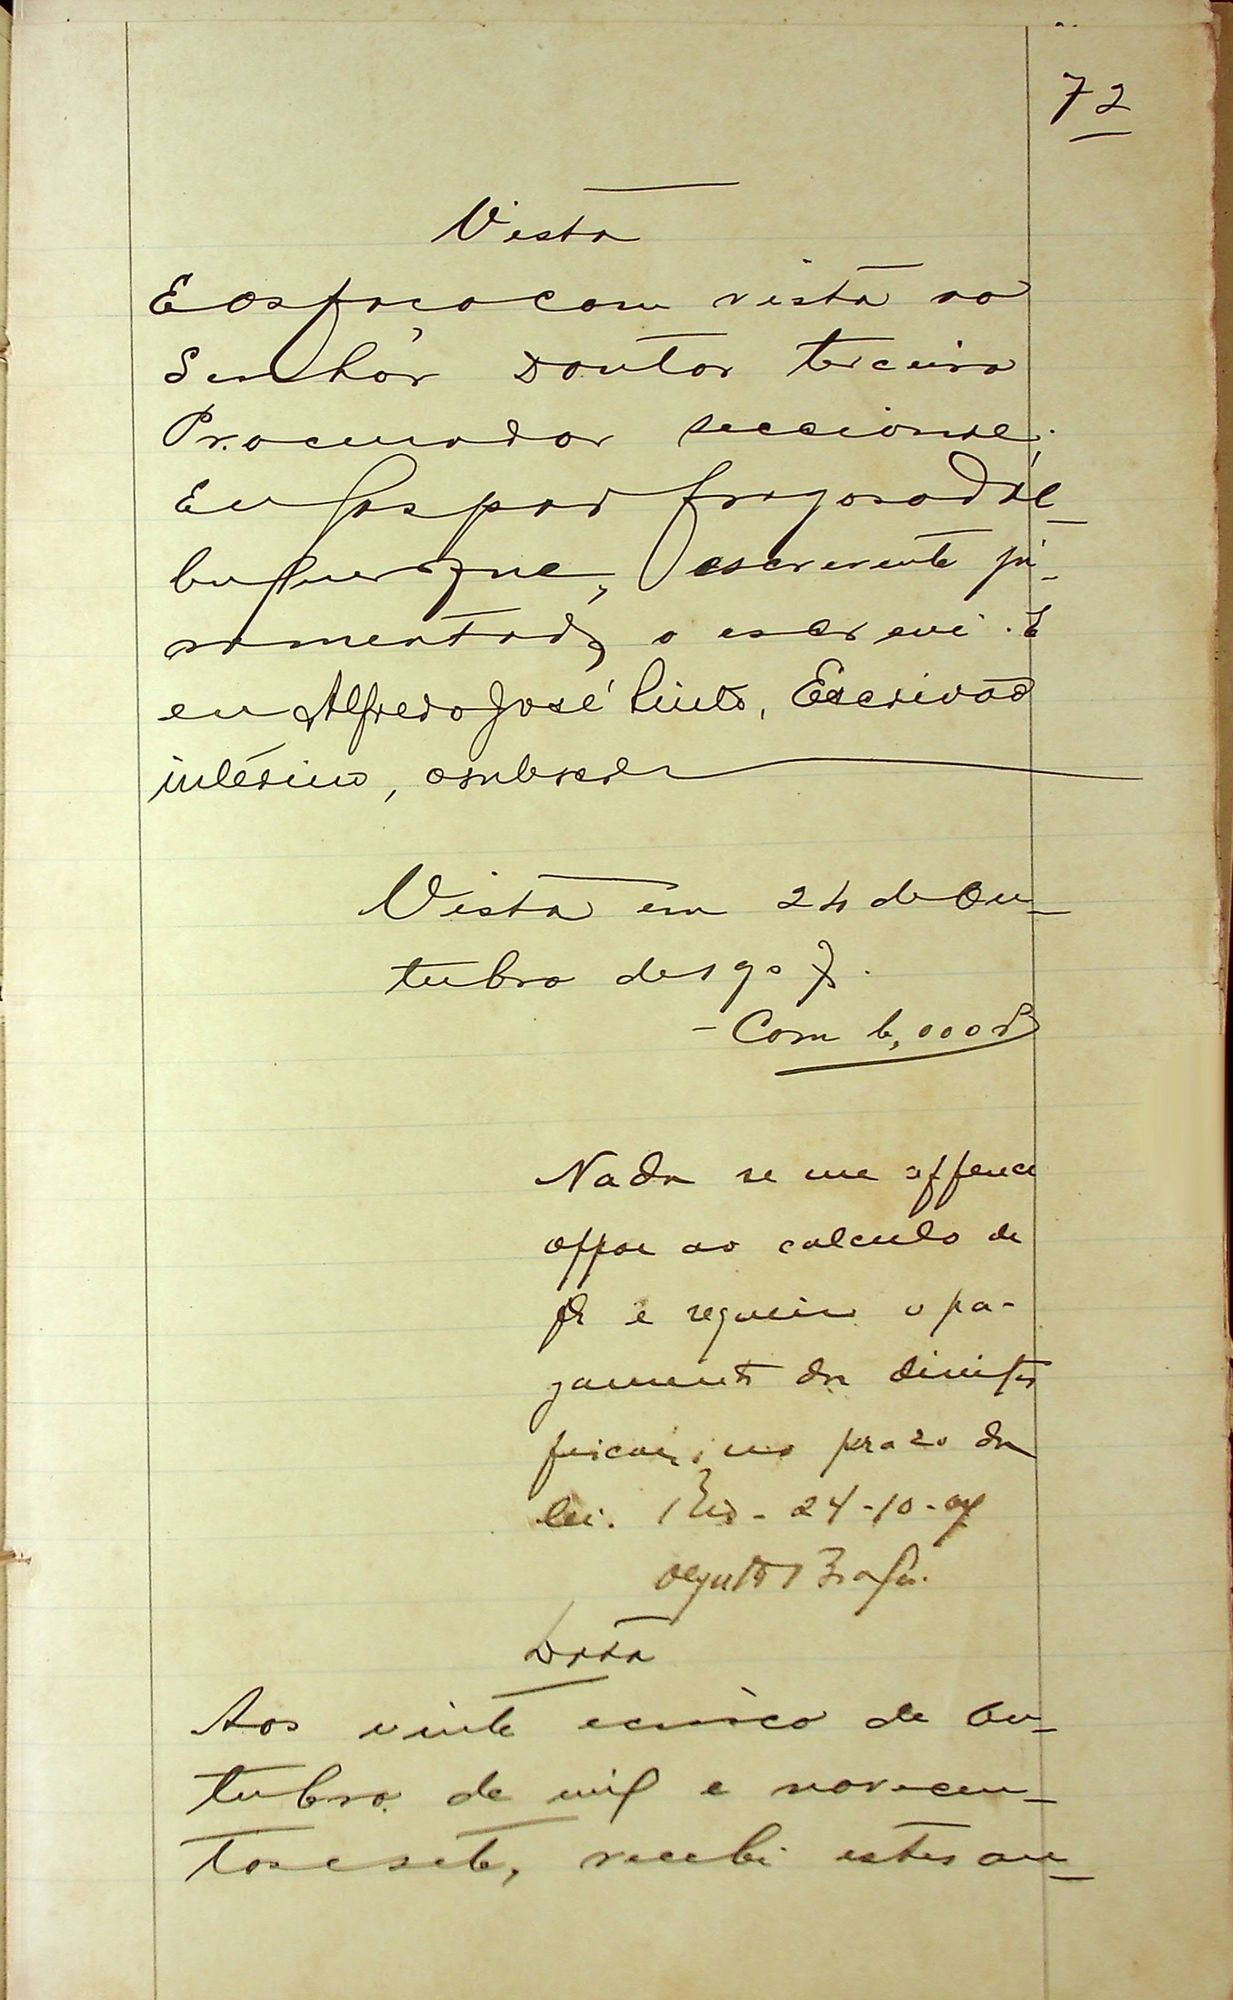 72
Vista
E os faco com vista ao
Senhor Doutor terceiro
Procurador seccional.
Eu Gaspar Fragoso d'Al-
buquerque, escrevente ju-
ramentado, o escrevi. E
eu Alfredo José Pinto, Escrivão
intérino, o subscr
Vista em 24 de Ou-
tubro de 1907.
- Com 6,000
Nada se me offerece
oppor ao calculo de
fl e requeiro o pa-
gamento dos direitos
fiscaes, no prazo da
lei. Rio - 24-10-07
Data
Aos vinte e cinco de Ou-
tubro de mil e novecen-
tos e sete, recebi estes au-